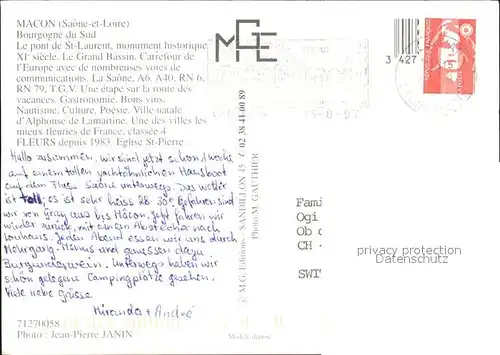 MACON (Saône-et-Loire)
Bourgogne du Sud
Le pont de St-Laurent, monument historique
XIe siècle. Le Grand Bassin. Carrefour de
l'Europe avec de nombreuses voies de
communications. La Saône, A6, A40, RN 6,
RN 79, T.G.V. Une étape sur la route des
vacances. Gastronomie. Bons vins.
Nautisme, Culture, Poésie. Ville natale
d'Alphonse de Lamartine. Une des villes les
mieux fleuries de France, classée 4
FLEURS depuis 1983. Eglise St-Pierre.
Hallo zusammen, wir sind jetzt schon 1 Woche
auf einem tollen yachtähnlichen Hausboot
auf dem Fluss Saône unterwegs. Das Wetter
ist toll; es ist sehr heiss 28-30°. Gefahren sind
wir von Gray aus bis Mâcon. Jetzt fahren wir
wieder zurück, mit einem Abstecher nach
Louhans. Jeden Abend essen wir uns durch
Mehrgang-Menus und geniessen dazu
Burgunderwein. Unterwegs haben wir
schön gelegene Campingplätze gesehen.
Viele liebe Grüsse
Miranda + André
71270058
Photo : Jean-Pierre JANIN
© M.G. Editions - SANDILLON 45 / 02 38 41 00 89
Photo M. GAUTHIER
Modèle déposé
MGE
3 427
Fami
Ogi
Ob d
CH -
SWI
privacy protection
AnsichtskartenVersand.com